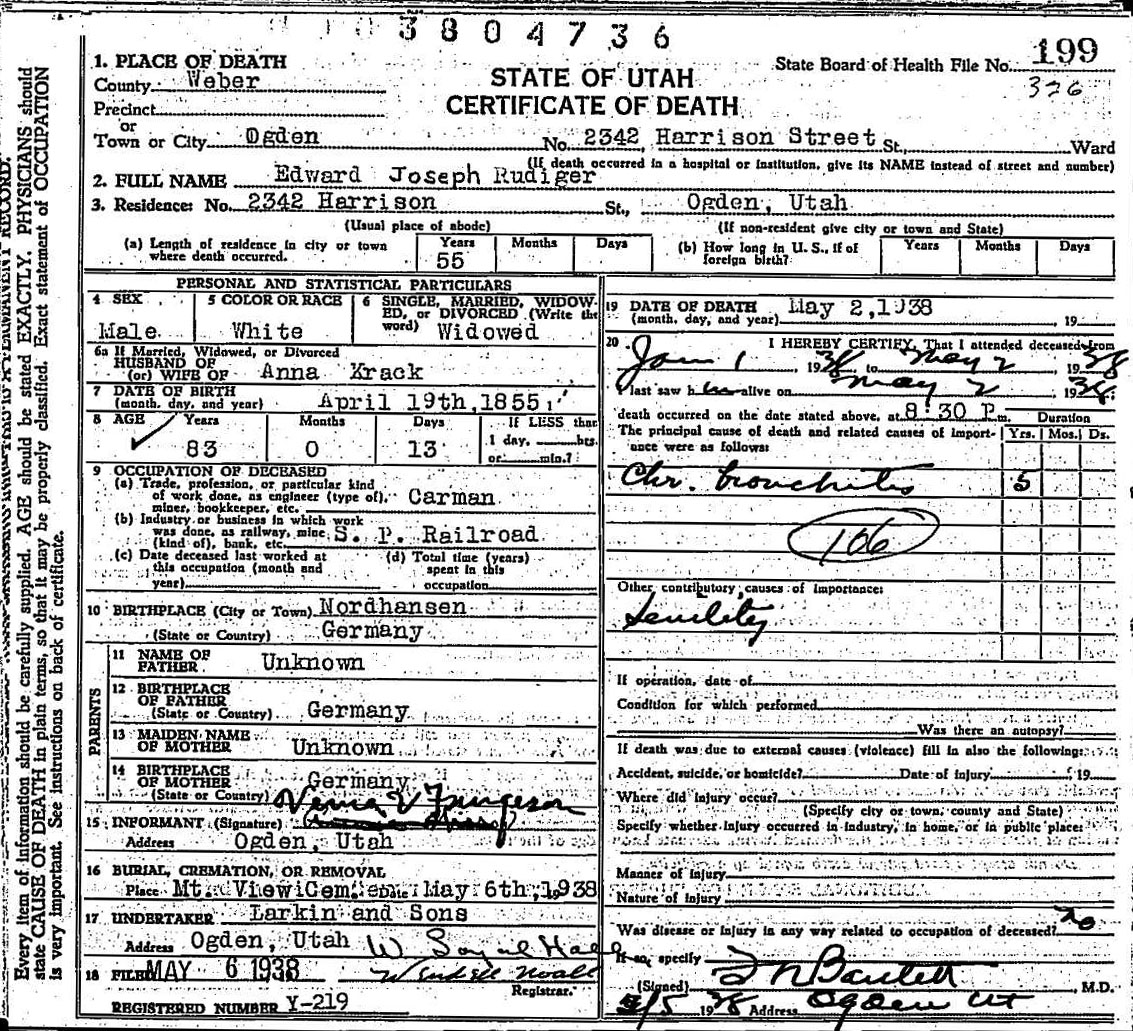 3804736
State Board of Health File No. 199
326
1. PLACE OF DEATH
County Weber
STATE OF UTAH
CERTIFICATE OF DEATH
Precinct
or
Town or City Ogden No. 2342 Harrison Street St., Ward
(If death occurred in a hospital or institution, give its NAME instead of street and number)
2. FULL NAME Edward Joseph Rudiger
3. Residence: No. 2342 Harrison St., Ogden, Utah
(Usual place of abode) (If non-resident give city or town and State)
(a) Length of residence in city or town where death occurred. Years 55 Months Days
(b) How long in U. S., if of foreign birth? Years Months Days
PERSONAL AND STATISTICAL PARTICULARS
4 SEX Male
5 COLOR OR RACE White
6 SINGLE, MARRIED, WIDOWED, or DIVORCED (Write the word) Widowed
6a If Married, Widowed, or Divorced
HUSBAND OF
(or) WIFE OF Anna Krack
7 DATE OF BIRTH
(month, day, and year) April 19th, 1855
8 AGE Years 83 Months 0 Days 13
If LESS than
1 day, hrs.
or min.?
9 OCCUPATION OF DECEASED
(a) Trade, profession, or particular kind
of work done, as engineer (type of),
miner, bookkeeper, etc. Carman
(b) Industry or business in which work
was done, as railway, mine
(kind of), bank, etc. S. P. Railroad
(c) Date deceased last worked at
this occupation (month and
year)
(d) Total time (years)
spent in this
occupation
10 BIRTHPLACE (City or Town) Nordhansen
(State or Country) Germany
PARENTS
11 NAME OF
FATHER Unknown
12 BIRTHPLACE
OF FATHER
(State or Country) Germany
13 MAIDEN NAME
OF MOTHER Unknown
14 BIRTHPLACE
OF MOTHER
(State or Country) Germany
15 INFORMANT (Signature)
Address Ogden, Utah
16 BURIAL, CREMATION, OR REMOVAL
Place Mt. View Cem. Date May 6th, 1938
17 UNDERTAKER Larkin and Sons
Address Ogden, Utah
18 FILED MAY 6 1938
Registrar.
REGISTERED NUMBER Y-219
19 DATE OF DEATH May 2, 1938
(month, day, and year) 19
20 I HEREBY CERTIFY, That I attended deceased from
Jan 1 1938, to May 2 1938
I last saw him alive on May 2 1938
death occurred on the date stated above, at 8:30 P. m.
Duration
The principal cause of death and related causes of importance were as follows: Yrs. Mos. Ds.
Chr. bronchitis 5
106
Other contributory causes of importance:
Senility
If operation, date of
Condition for which performed
Was there an autopsy?
If death was due to external causes (violence) fill in also the following:
Accident, suicide, or homicide? Date of injury 19
Where did injury occur?
(Specify city or town, county and State)
Specify whether injury occurred in industry, in home, or in public place:
Manner of injury
Nature of injury
Was disease or injury in any way related to occupation of deceased? no
If so, specify
(Signed) Bartlett M.D.
5/5 1938 Address Ogden Ut
Every item of information should be carefully supplied. AGE should be stated EXACTLY. PHYSICIANS should
state CAUSE OF DEATH in plain terms, so that it may be properly classified. Exact statement of OCCUPATION
is very important. See instructions on back of certificate.